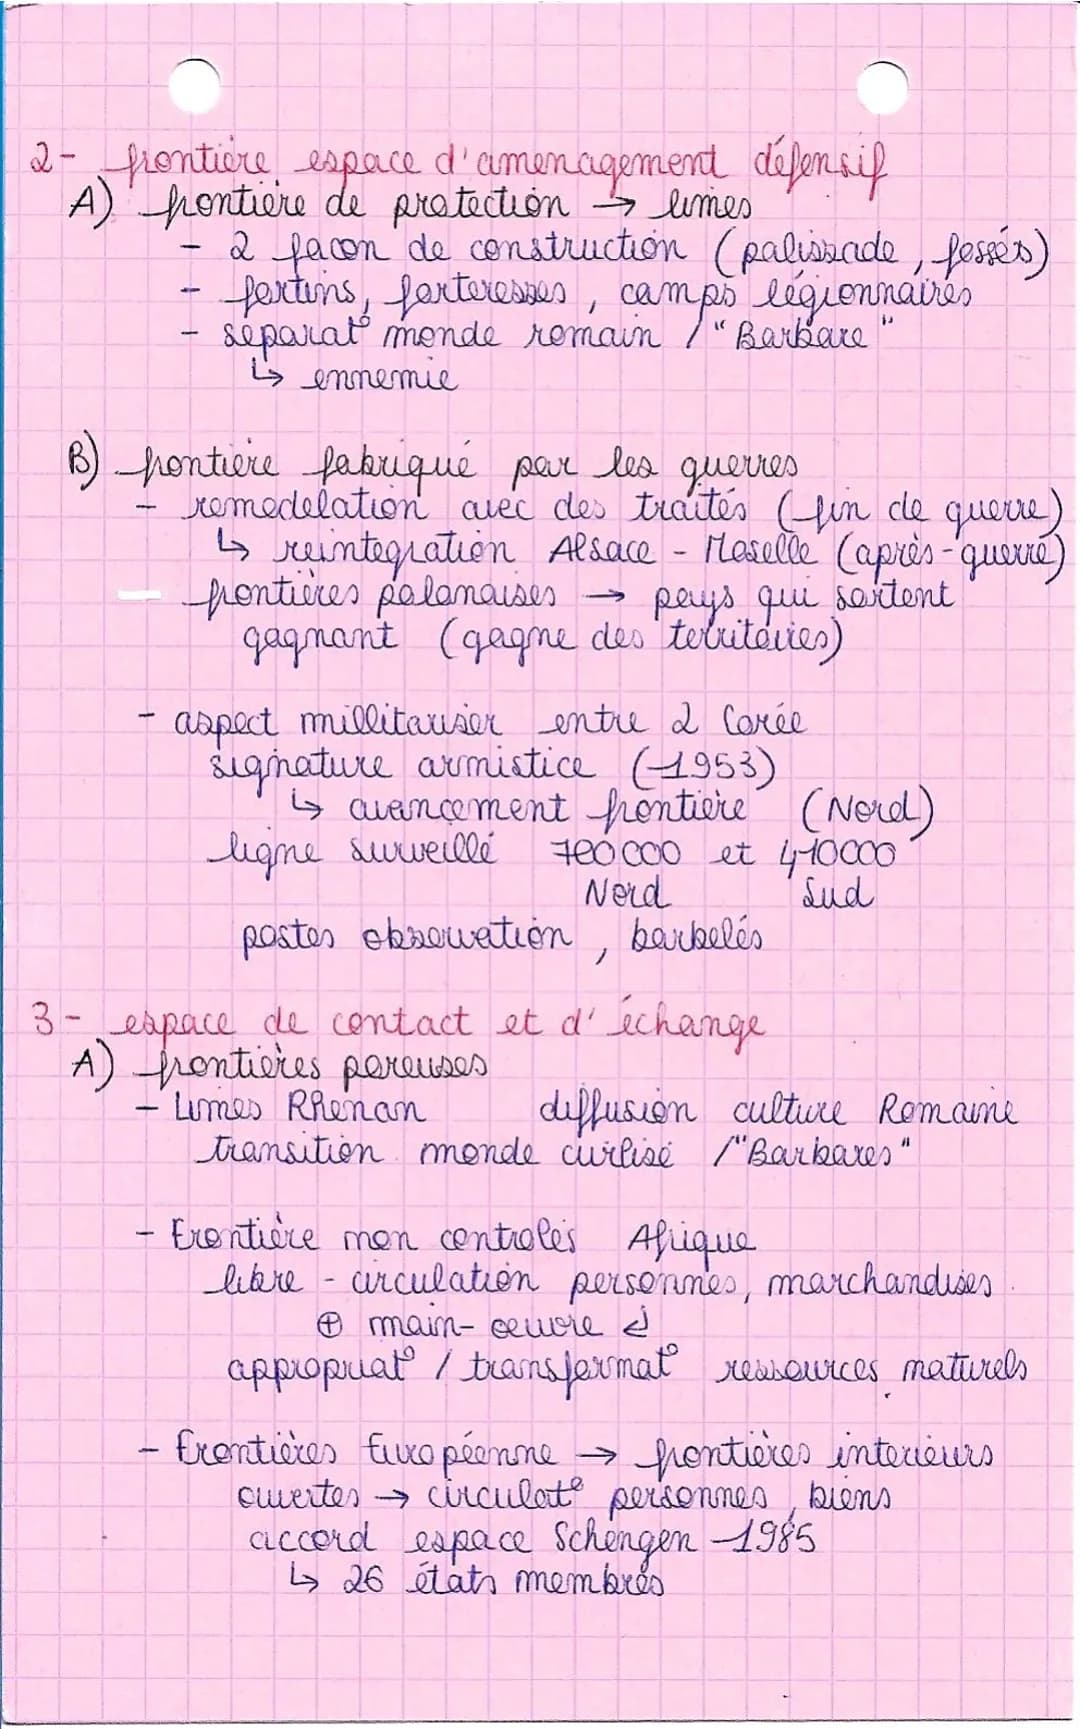 2- frontière espace d'amenagement défensif
A) frontière de protection → limes
- 2 facon de construction (palissade, fossés)
- fortins, forteresses, camps légionnaires
- séparat° monde romain / "Barbare"
↳ ennemie
B) frontière fabriqué par les guerres
- remodelation avec des traités (fin de guerre)
↳ reintegration Alsace - Moselle (après-guerre)
- frontières polonaises → pays qui sortent
gagnant (gagne des territoires)
- aspect millitariser entre 2 Corée
signature armistice (1953)
↳ avancement frontière (Nord)
ligne surveillé 700 000 et 410000
Nord Sud
postes observation, barbelés
3- espace de contact et d'échange
A) frontières poreuses
- Limes Rhenan diffusion culture Romaine
transition monde civilisé / "Barbares"
- Frontière non controlés Afrique
libre - circulation personnes, marchandises
⊕ main-oeuvre ↲
appropriat° / transformat° ressources naturels
- Frontières Européenne → frontières interieurs
ouvertes → circulat° personnes, biens
accord espace Schengen 1985
↳ 26 états membres